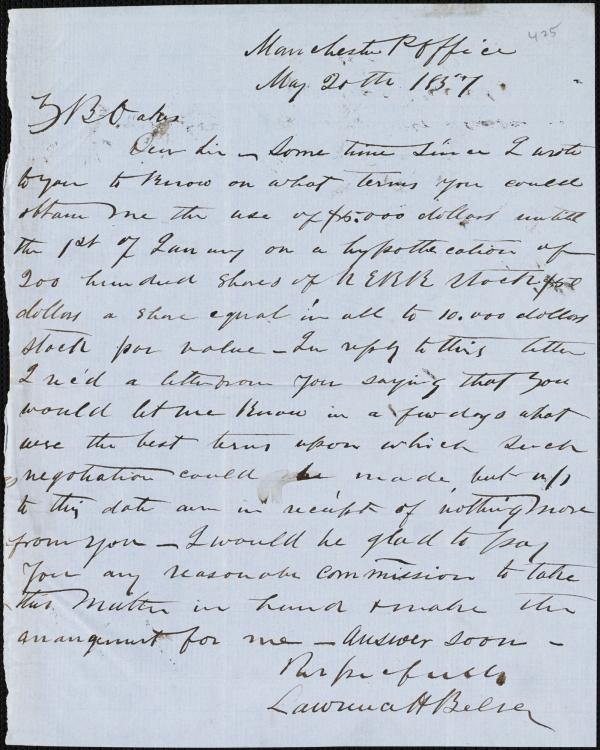 425
Manchester P Office
May 20th 1857
Z B Oakes
Dear Sir – Some time Since I wrote
to you to Know on what terms you could
obtain me the use of $5.000 dollars untill
the 1st of January on a hypothecation of
200 hundred Shares of Stock $50
dollars a Share equal in all to 10.000 dollars
stock par value – In reply to this letter
I rec'd a letter from you saying that you
would let me Know in a few days what
were the best terms upon which such
negotiation could be made, but up
to this date am in receipt of nothing more
from you – I would be glad to pay
you any reasonabe commission to take
this matter in hand & make the
arrangement for me – Answer soon –
Respectfully
Lawrence H Belser